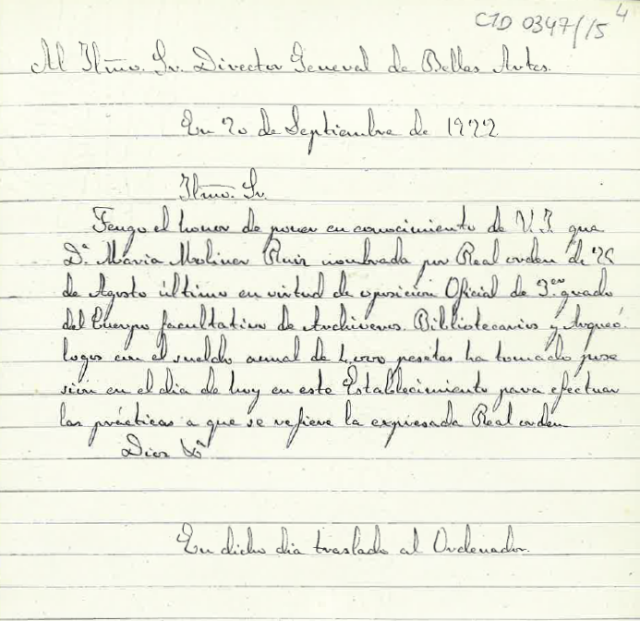 CID 0347/15 4
Al Iltmo. Sr. Director General de Bellas Artes.
En 20 de Septiembre de 1922
Iltmo. Sr.
Tengo el honor de poner en conocimiento de V. I. que
Dª. María Moliner Ruiz nombrada por Real orden de
de Agosto último en virtud de oposición Oficial de 3er. grado
del Cuerpo facultativo de Archiveros, Bibliotecarios y Arqueó
logos con el sueldo anual de 4.000 pesetas ha tomado pose
sión en el dia de hoy en este Establecimiento para efectuar
las prácticas a que se refiere la expresada Real orden
Dios
En dicho dia traslado al Ordenador.